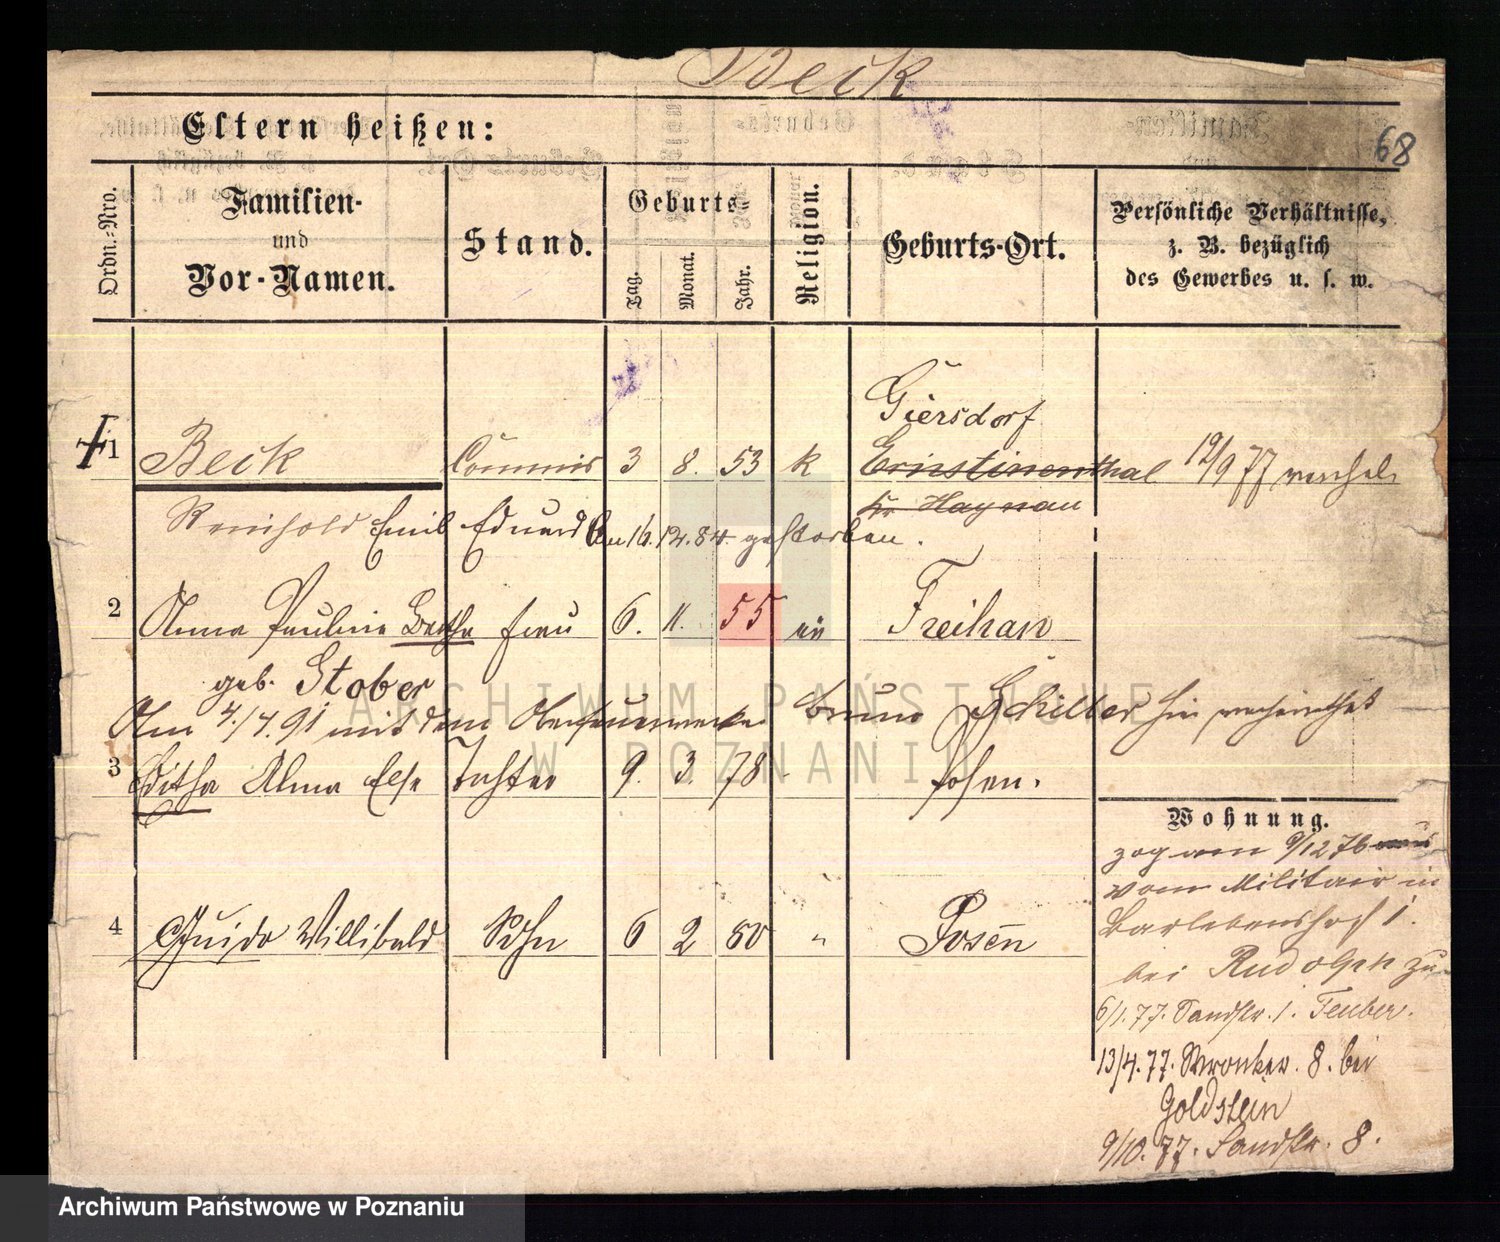 Beck
Eltern heißen:
68
Ordn.-Nro.
Familien-
und
Vor-Namen.
Stand.
Geburts-
Tag.
Monat.
Jahr.
Religion.
Geburts-Ort.
Persönliche Verhältnisse,
z. B. bezüglich
des Gewerbes u. s. w.
Giersdorf
1 Beck Commis 3 8. 53 k Ernstinenthal 19/9 77
Kr Haynau
Reinhold Emil Eduard Am 16.12.84 gestorben.
2 Anna Pauline Bertha Frau 6. 11. 55 Freihan
geb. Stober
Am 4./4.91 mit dem Oberfeuerwerker Bruno Schiller hier verheirathet
3 Editha Alma Else Tochter 9. 3. 78 Posen.
4 Guido Willibald Sohn 6 2 80 " Posen
Wohnung.
zog am 9/12 76
vom Militair in
Bartlebenshof 1.
bei Rudolph zu
6/1.77. Sandstr. 1. Teuber.
13/4.77. Wronker. 8. bei
Goldstein
9/10.77. Sandstr. 8.
ARCHIWUM PAŃSTWOWE
W POZNANIU
Archiwum Państwowe w Poznaniu